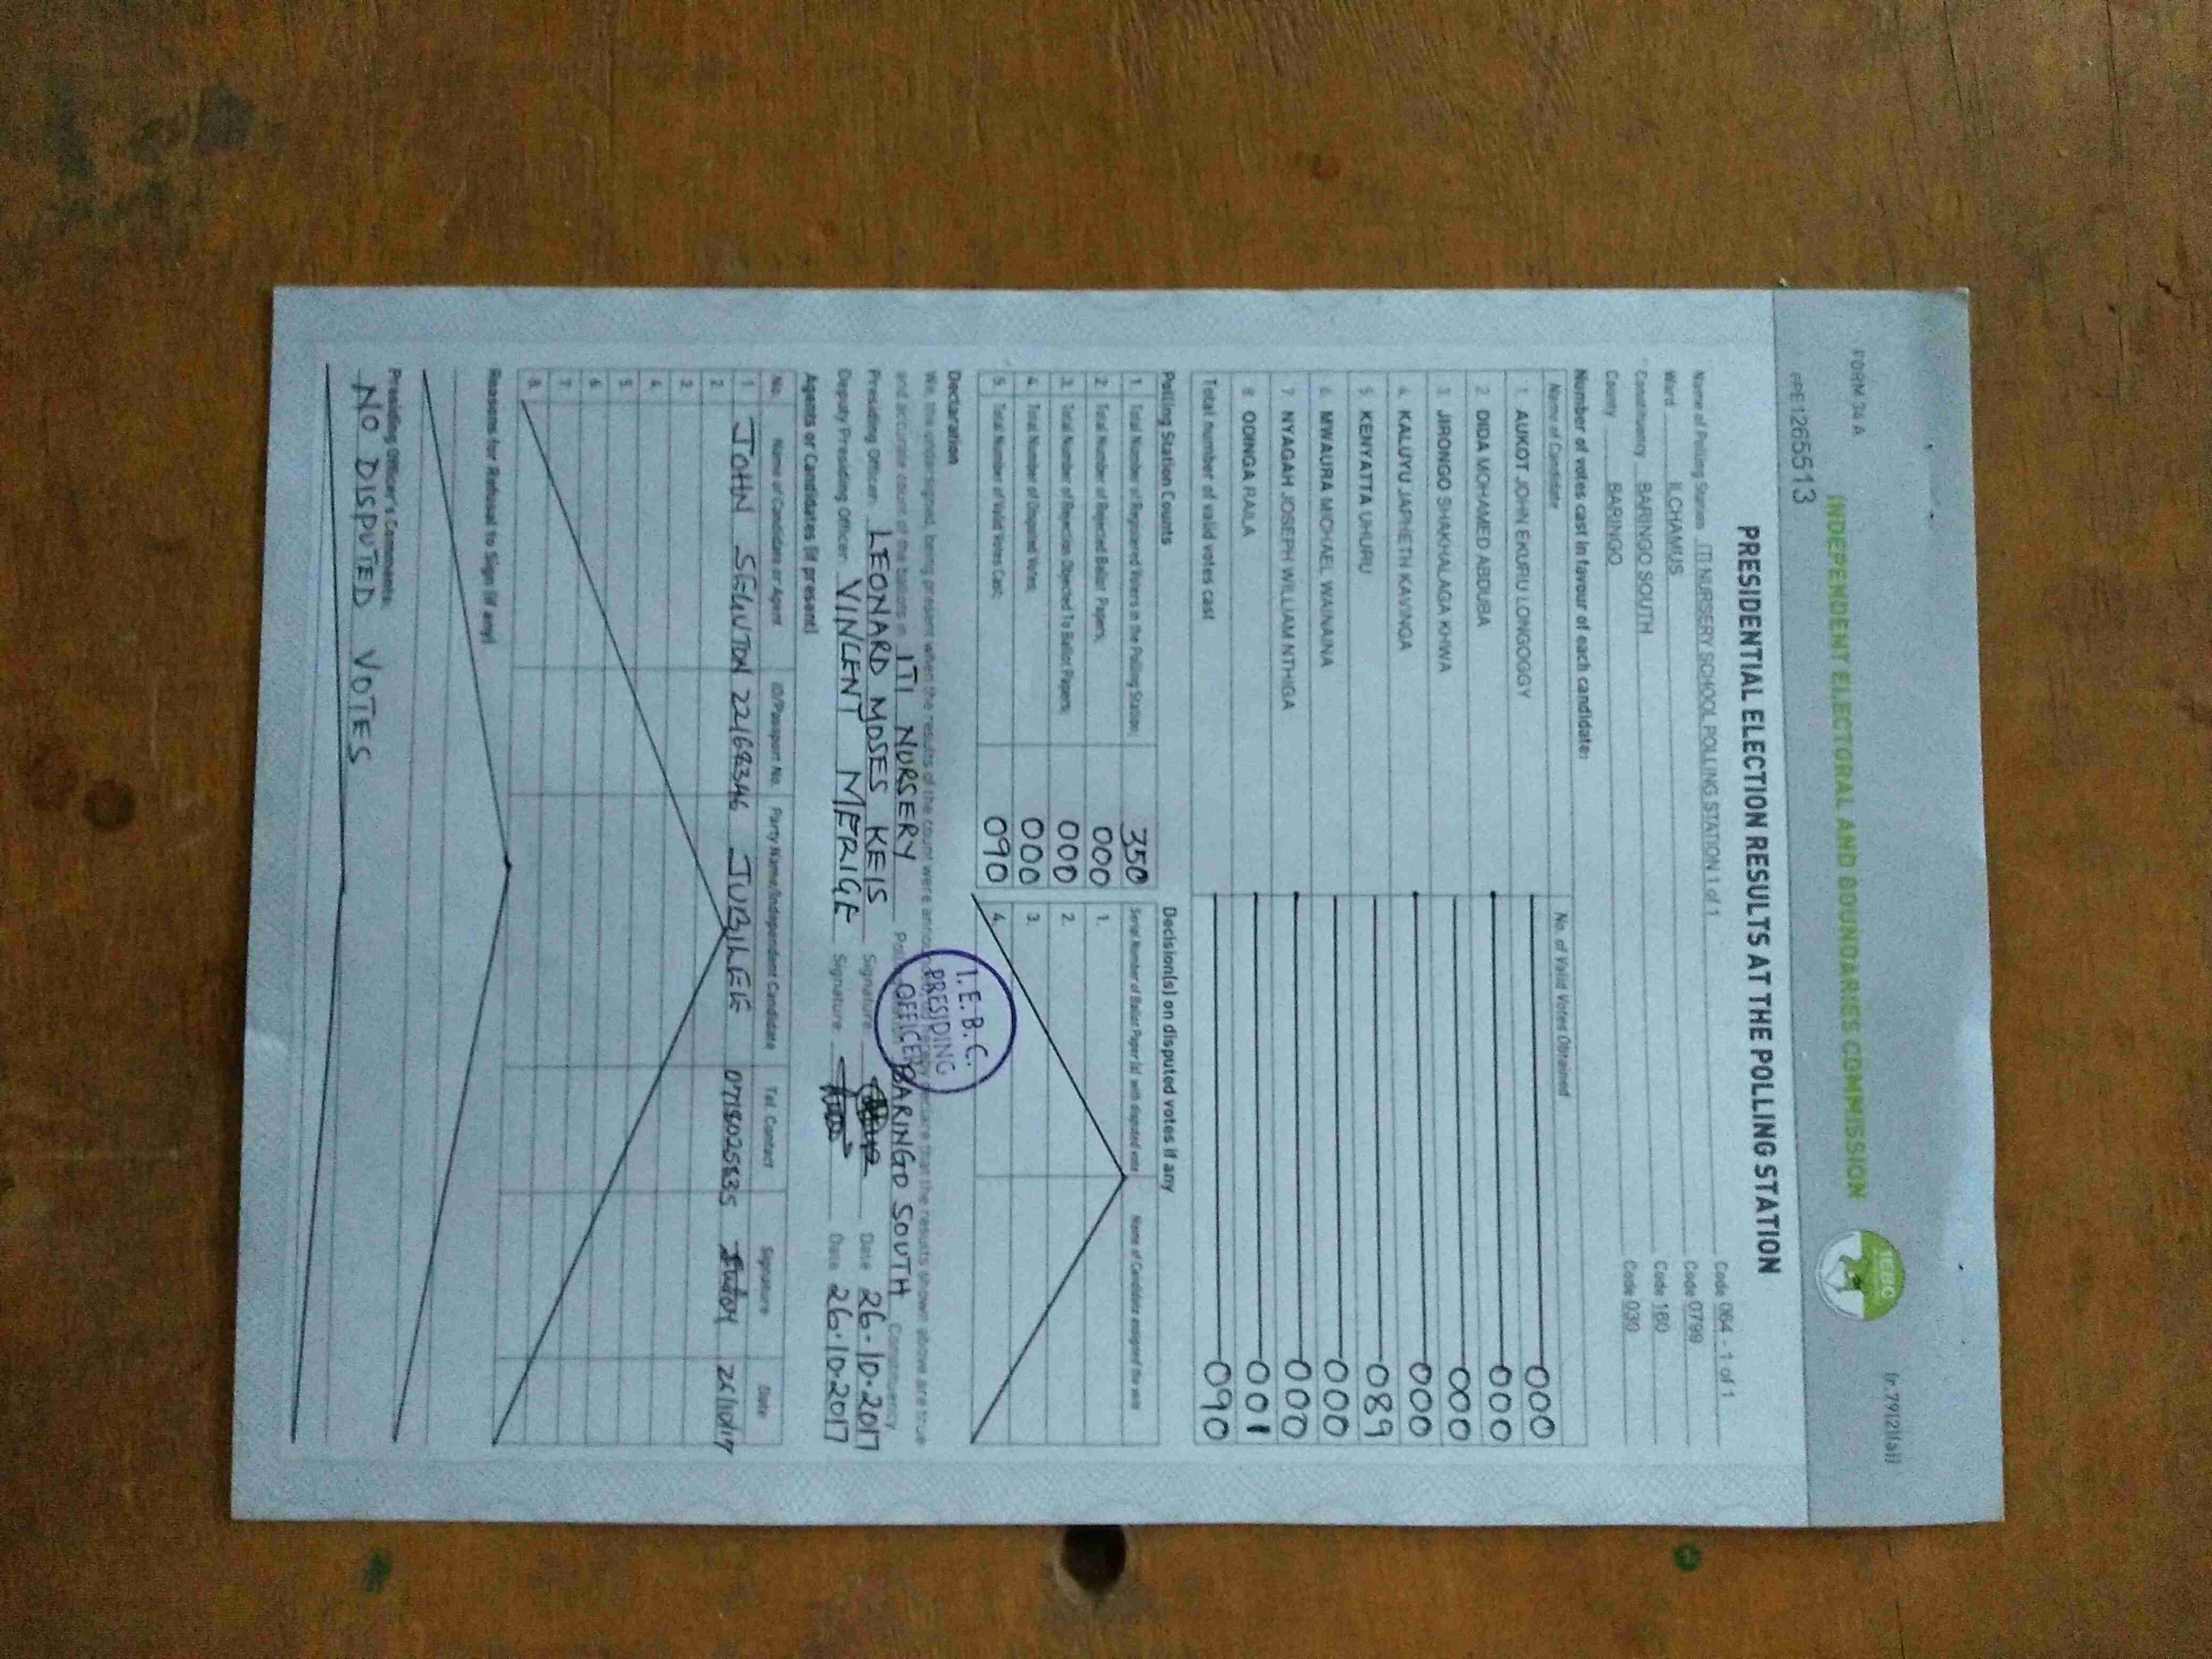 FORM 34 A
INDEPENDENT ELECTORAL AND BOUNDARIES COMMISSION
IEBC
(r.79(2)(a))
PRE1265513
PRESIDENTIAL ELECTION RESULTS AT THE POLLING STATION
Name of Polling Station ITI NURSERY SCHOOL POLLING STATION 1 of 1 Code 064 - 1 of 1
Ward ILCHAMUS Code 0799
Constituency BARINGO SOUTH Code 160
County BARINGO Code 030
Number of votes cast in favour of each candidate:
Name of Candidate No. of Valid Votes Obtained
1. AUKOT JOHN EKURU LONGOGGY 000
2. DIDA MOHAMED ABDUBA 000
3. JIRONGO SHAKHALAGA KHWA 000
4. KALUYU JAPHETH KAVINGA 000
5. KENYATTA UHURU 089
6. MWAURA MICHAEL WAINAINA 000
7. NYAGAH JOSEPH WILLIAM NTHIGA 000
8. ODINGA RAILA 001
Total number of valid votes cast 090
Polling Station Counts
1. Total Number of Registered Voters in the Polling Station; 350
2. Total Number of Rejected Ballot Papers; 000
3. Total Number of Rejection Objected To Ballot Papers; 000
4. Total Number of Disputed Votes; 000
5. Total Number of Valid Votes Cast; 090
Decision(s) on disputed votes if any
Serial Number of Ballot Paper (s) with disputed vote Name of Candidate assigned the vote
1.
2.
3.
4.
Declaration
We, the undersigned, being present when the results of the count were announced, do hereby declare that the results shown above are true
and accurate count of the ballots in ITI NURSERY Polling Station BARINGO SOUTH Constituency
Presiding Officer: LEONARD MOSES KEIS Signature Date 26.10.2017
Deputy Presiding Officer: VINCENT MERIGE Signature Date 26.10.2017
I.E.B.C.
PRESIDING
OFFICER
Agents or Candidates (if present)
No. Name of Candidate or Agent ID/Passport No. Party Name/Independent Candidate Tel. Contact Signature Date
1 JOHN 22168346 JUBILEE 26/10/17
2
3
4
5
6
7
8
Reasons for Refusal to Sign (if any)
Presiding Officer's Comments:
NO DISPUTED VOTES